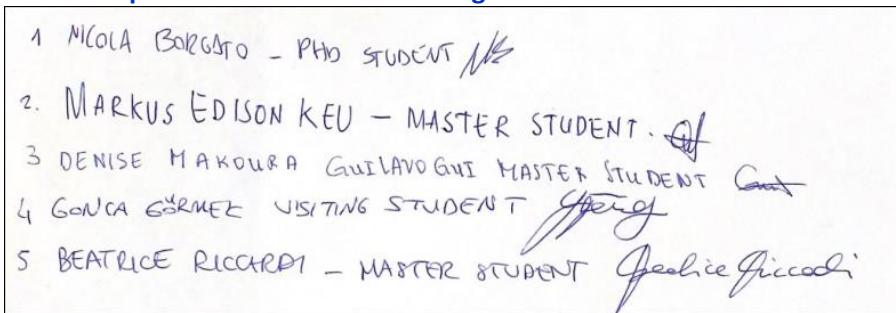 1 NICOLA BORGATO - PHD STUDENT
2. MARKUS EDISON KEU - MASTER STUDENT.
3 DENISE MAKOURA GUILAVOGUI MASTER STUDENT
4 GONCA GÖRMEZ VISITING STUDENT
5 BEATRICE RICCARDI - MASTER STUDENT Beatrice Riccardi